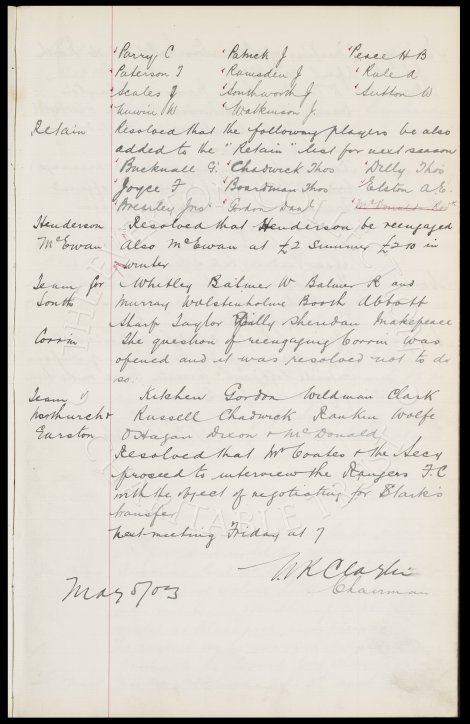 Parry C Patrick J Peace H B
Paterson T Ramsden J Rule A
Scales J Southworth J Sutton W
Unwin W Watkinson J.
Retain Resolved that the following players be also
added to the "Retain" list for next season
Bucknall G. Chadwick Thos Dilly Thos
Joyce F Boardman Thos Elston A E.
Brearley Jno Gordon Danl McDonald
Henderson Resolved that Henderson be reengaged
McEwan Also McEwan at £2 Summer £2 10 in
winter
Team for Whitley Balmer W Balmer R and
South Murray Wolstenholme Booth Abbott
Sharp Taylor Dilly Sheridan Makepeace
Corrin The question of reengaging Corrin was
opened and it was resolved not to do
so.
Team v Kitchen Gordon Wildman Clark
Northwich & Russell Chadwick Rankin Wolfe
Earston O'Hagan Dixon & McDonald
Resolved that Mr Coates & the Secy
proceed to interview the Rangers F.C
with the object of negotiating for Stark's
transfer
Next meeting Friday at 7
W R Clayton
May 5/03 Chairman